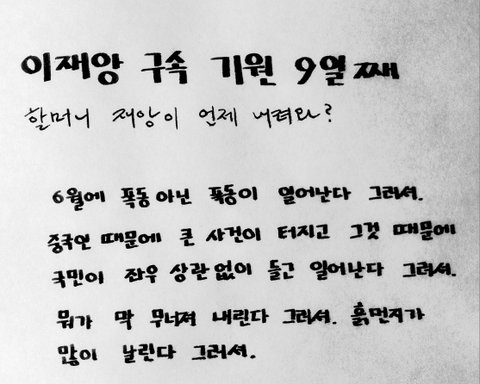 이재앙 구속 기원 9일째
할머니 재앙이 언제 내려와?
6월에 폭동 아닌 폭동이 일어난다 그러셔.
중국인 때문에 큰 사건이 터지고 그것 때문에
국민이 좌우 상관없이 들고 일어난다 그러셔.
뭐가 막 무너져 내린다 그러셔. 흙먼지가
많이 날린다 그러셔.